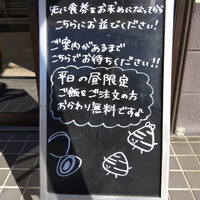 先に食券をお求めになってから
こちらにお並びください!
ご案内があるまで
こちらでお待ちください!!
平日の昼限定
ご飯をご注文の方
おかわり無料です♪